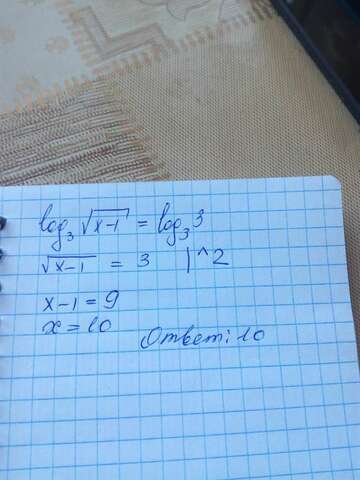 log₃ √x-1 = log₃ 3
√x-1 = 3 |^2
x-1 = 9
x = 10
Ответ: 10